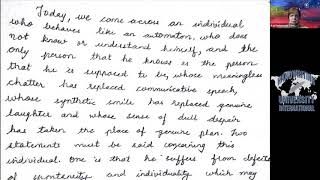 Today, we come across an individual
who behaves like an automaton, who does
not know or understand himself, and the
only person that he knows is the person
that he is supposed to be, whose meaningless
chatter has replaced communicative speech,
whose synthetic smile has replaced genuine
laughter and whose sense of dull despair
has taken the place of genuine plan. Two
statements must be said concerning this
individual. One is that he suffers from defects
of spontaneity and individuality which may
UNIVERSITY
INTERNATIONAL